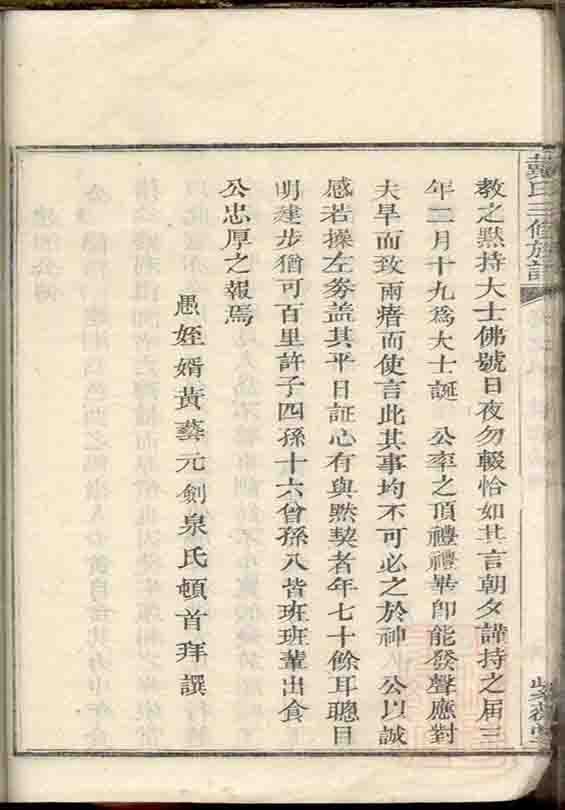 戴氏三修族譜
教之默持大士佛號日夜勿輟恰如其言朝夕謹持之届三
年二月十九爲大士誕　公率之頂禮禮畢卽能發聲應對
夫旱而致雨瘖而使言此其事均不可必之於神　公以誠
感若操左券盖其平日証心有與默契者年七十餘耳聰目
明建步猶可百里許子四孫十六曾孫八皆班班輩出食
公忠厚之報焉
愚姪婿黃藝元劍泉氏頓首拜譔